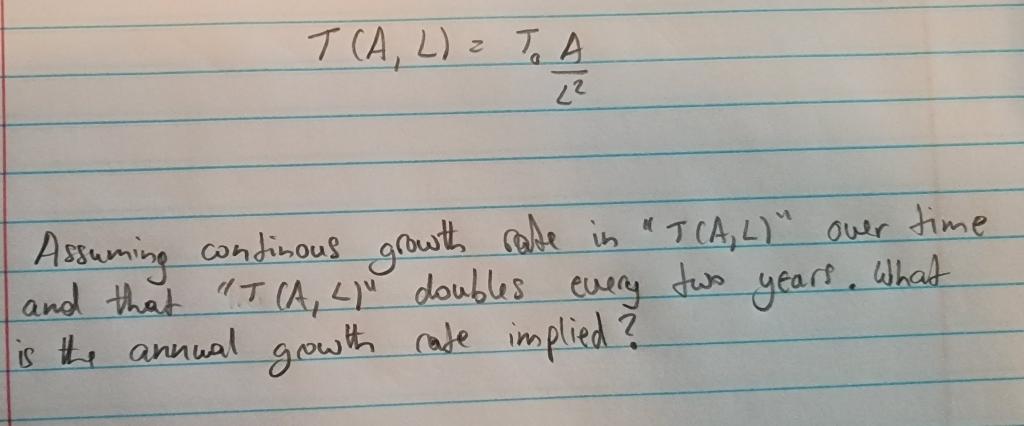 T(A, L) = T₀ A
L²
Assuming continous growth rate in "T(A,L)" over time
and that "T(A, L)" doubles every two years. What
is the annual growth rate implied?